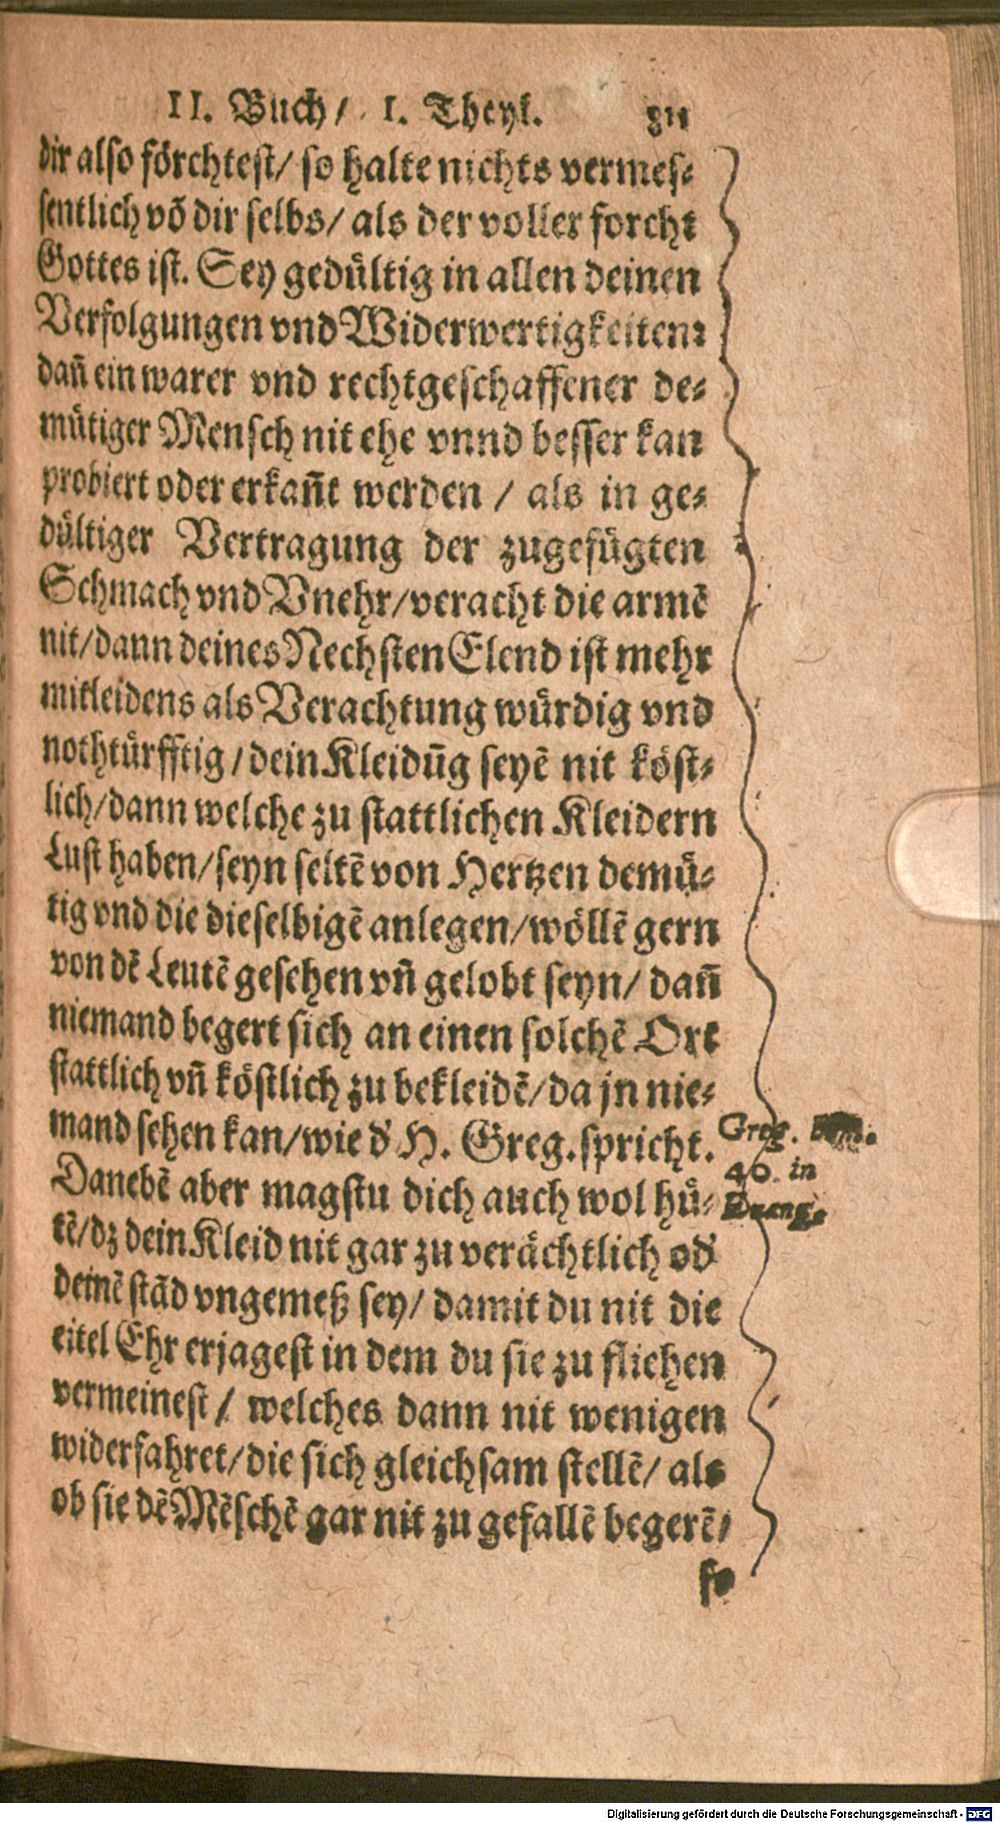 II. Buch/ I. Theyl. 311
dir also förchtest/ so halte nichts vermes⸗
sentlich võ dir selbs/ als der voller forcht
Gottes ist. Sey gedültig in allen deinen
Verfolgungen vnd Widerwertigkeiten:
dañ ein warer vnd rechtgeschaffener de⸗
mütiger Mensch nit ehe vnnd besser kan
probiert oder erkañt werden / als in ge⸗
dültiger Vertragung der zugefügten
Schmach vnd Vnehr/veracht die armē
nit/dann deines Nechsten Elend ist mehr
mitleidens als Verachtung würdig vnd
nothtürfftig/dein Kleidūg seyē nit köst⸗
lich/dann welche zu stattlichen Kleidern
Lust haben/seyn seltē von Hertzen demü⸗
tig vnd die dieselbigē anlegen/wöllē gern
von dē Leutē gesehen vñ gelobt seyn/ dañ
niemand begert sich an einen solchē Ort
stattlich vñ köstlich zu bekleidē/da jn nie⸗
mand sehen kan/wie d' H. Greg. spricht.
Greg.
40. in
Euang.
Danebē aber magstu dich auch wol hü⸗
tē/dz dein Kleid nit gar zu verächtlich od'
deinē stād vngemeß sey/ damit du nit die
eitel Ehr erjagest in dem du sie zu fliehen
vermeinest/ welches dann nit wenigen
widerfahret/die sich gleichsam stellē/ als
ob sie dē Mēschē gar nit zu gefallē begerē/
so
Digitalisierung gefördert durch die Deutsche Forschungsgemeinschaft - DFG